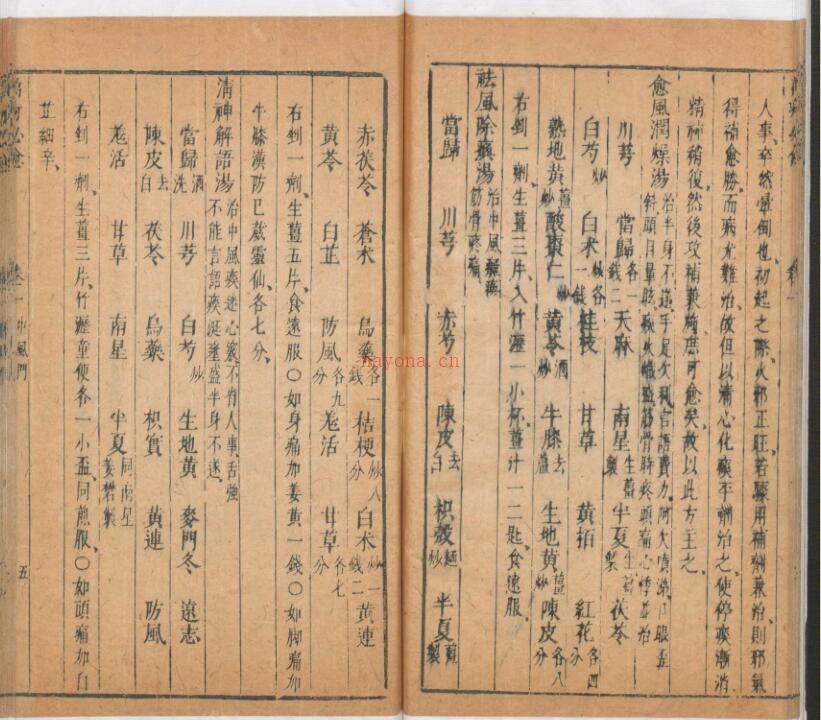 人事卒然暈倒也初起之際火邪正旺若驟用補劑兼治則邪氣
得補愈勝而病尤難治故但以清心化痰平劑治之使停痰漸消
精神稍復然後攻補兼施庶可愈矣故以此方主之
愈風潤燥湯 治半身不遂手足欠利言語費力呵欠噴嚏口眼歪
斜頭目暈眩痰火熾盛筋骨時疼頭痛心悸並治
川芎 當歸各一錢二 天麻 南星生薑製 半夏生薑製 茯苓
白芍炒 白术炒各一錢 桂枝 甘草 黃栢 紅花各四分
熟地黃薑炒 酸棗仁炒 黃芩酒炒 牛膝去蘆 生地黃薑炒 陳皮各八分
右剉一劑生薑三片入竹瀝一小杯薑汁一二匙食遠服
祛風除痰湯 治中風癱瘓筋骨疼痛
當歸 川芎 赤芍 陳皮去白 枳殼麵炒 半夏薑製
赤茯苓 蒼术 烏藥各一錢 桔梗炒八分 白术炒一錢二 黃連
黃芩 白芷 防風各九分 羌活 甘草各七分
右剉一劑生薑五片食遠服○如身痛加姜黃一錢○如脚痛加
牛膝漢防巳葳靈仙各七分
清神解語湯 治中風痰迷心竅不省人事舌強
不能言語痰涎壅盛半身不遂
當歸酒洗 川芎 白芍炒 生地黃 麥門冬 遠志
陳皮去白 茯苓 烏藥 枳實 黃連 防風
羌活 甘草 南星 半夏同南星姜礬製
右剉一劑生薑三片竹瀝童便各一小盃同煎服○如頭痛加白
芷細辛
卷一 中風門
五
nayona.cn